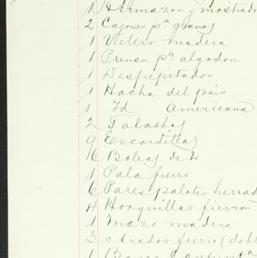 1 Armazon y mostrador
2 Cajones pª granos
1 Vlelero madera
1 Prensa pª algodon
1 Despepitador
1 Hacha del pais
1 Id Americana
2 Talachos
9 Escardillas
16 Boleas de
1 Pala fierro
6 Pares palote herrad
4 Horquillas fierro
1 Mazo madera
2 Arados fierro (dobl
1